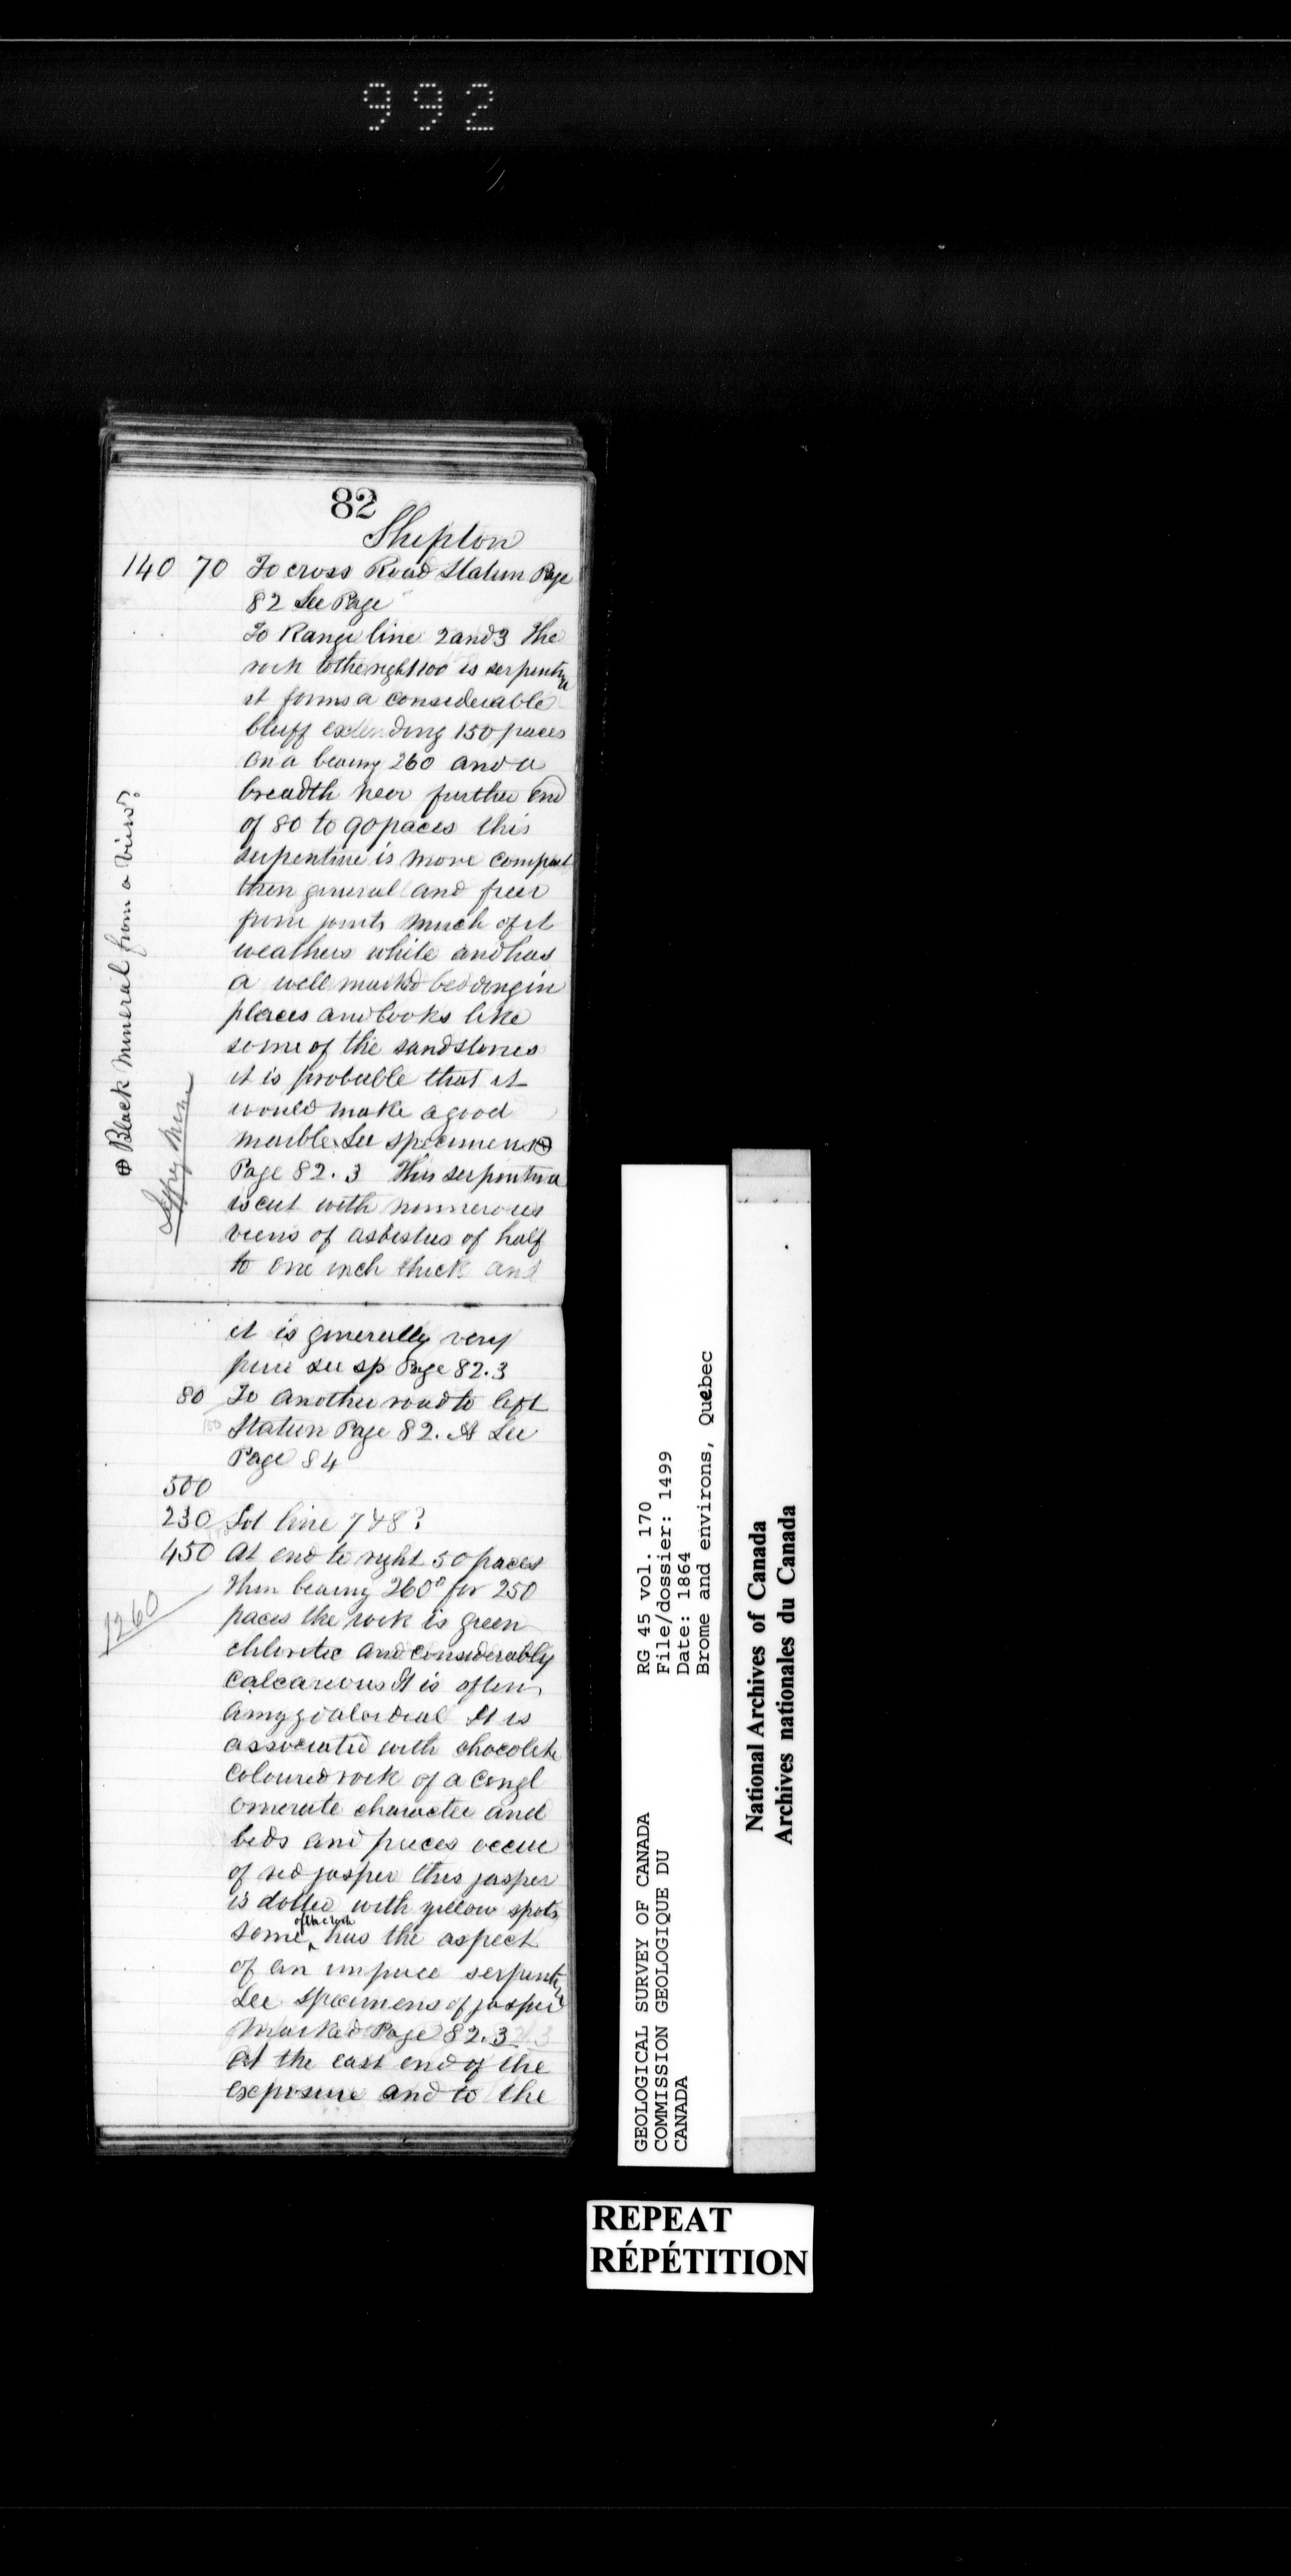 992
82
Shipton
140 70 To cross Road Station Page
82 See Page
To Range line 2 and 3 The
rock to the right 100 is serpentine
it forms a considerable
bluff extending 150 paces
on a bearing 260 and a
breadth near further end
of 80 to 90 paces this
serpentine is more compact
then general and freer
from joints much of it
weathers white and has
a well marked bedding in
places and looks like
some of the sandstones
it is probable that it
would make a good
marble See specimens ⊕
Page 82.3 This serpentine
is cut with numerous
viens of asbestus of half
to one inch thick and
⊕ Black Mineral from a view?
it is generally very
pure see sp Page 82.3
80 To another road to left
Station Page 82. A See
Page 84
500
230 Lot line 7 & 8?
450 at end to right 50 paces
then bearing 260° for 250
1260
paces the rock is green
chloritic and considerably
calcareous It is often
amygdaloidal It is
associated with chocolate
coloured rock of a congl
omerate character and
beds and pieces occur
of red jasper this jasper
is dotted with yellow spots
some of the rock has the aspect
of an impure serpentine
See specimens of jasper
Marked Page 82.3
At the east end of the
exposure and to the
GEOLOGICAL SURVEY OF CANADA
COMMISSION GEOLOGIQUE DU
CANADA
RG 45 vol. 170
File/dossier: 1499
Date: 1864
Brome and environs, Quebec
National Archives of Canada
Archives nationales du Canada
REPEAT
RÉPÉTITION